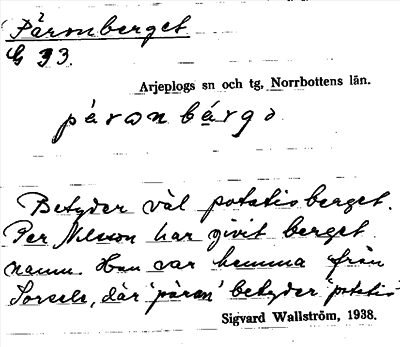 Päronberget
G 33.
Arjeplogs sn och tg, Norrbottens län.
päronbárgo
Betyder väl potatisberget.
Per Nilsson har givit berget
namn. Han var hemma från
Sorsele, där 'päron' betyder 'potatis'
Sigvard Wallström, 1938.